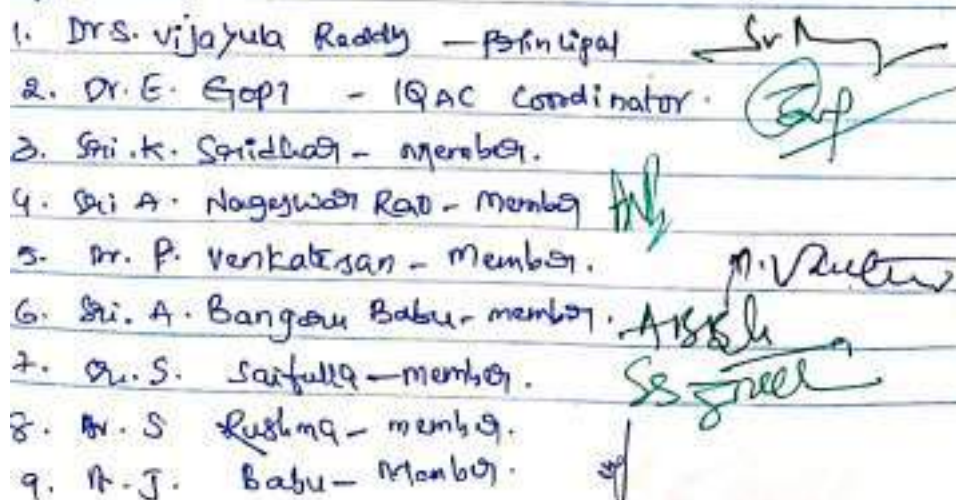 1. Dr S. Vijayula Reddy - Principal
2. Dr. E. Gopi - IQAC Coordinator.
3. Sri. K. Sridhar - Member.
4. Sri A. Nageswar Rao - Member
5. Dr. P. Venkatesan - Member.
6. Sri. A. Bangaru Babu - member.
7. Dr. S. Saifulla - member.
8. Dr. S Rushma - member.
9. J. Babu - Member.